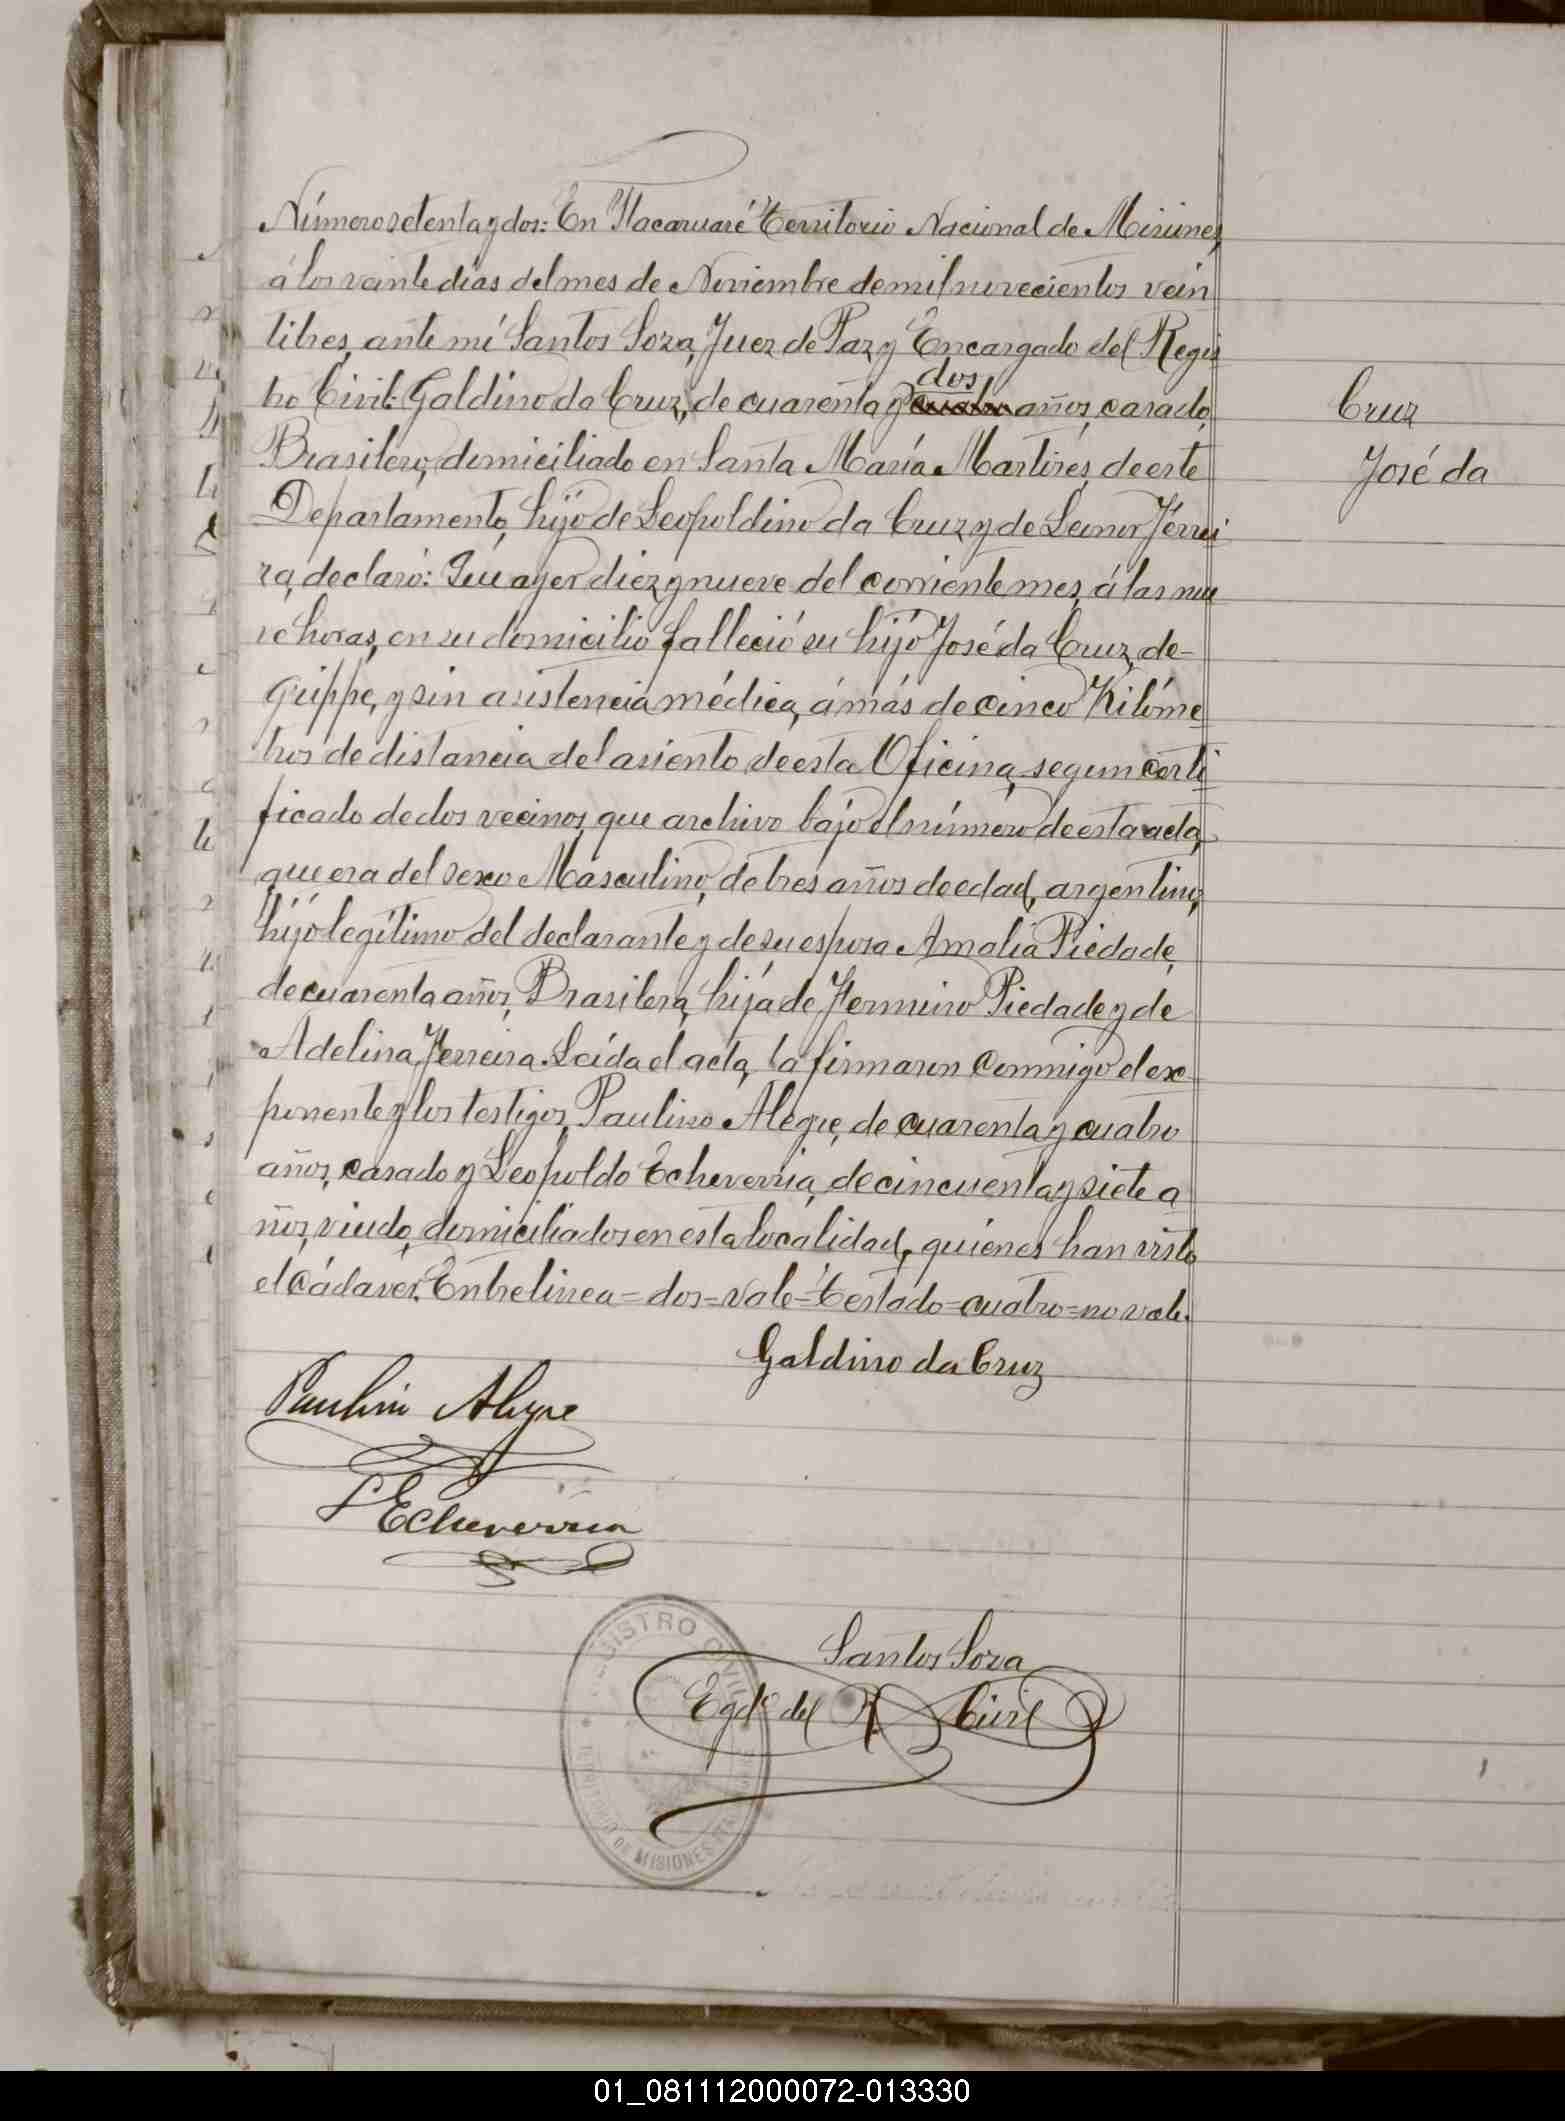 Número setenta y dos: En Itacaruaré Territorio Nacional de Misiones,
á los veinte dias del mes de Noviembre de mil novecientos vein
titres, ante mí Santos Soza, Juez de Paz y Encargado del Regis
tro Civil: Galdino da Cruz, de cuarenta y cuatro años, casado,
dos
Brasilero, domiciliado en Santa María Martires, de este
Departamento, hijo de Leopoldino da Cruz y de Leonor Ferrei
ra, declaró: Que ayer diez y nueve del corriente mes, á las nue
ve horas, en su domicilio falleció su hijo José da Cruz, de-
Grippe, y sin asistencia médica, á más de cinco Kilóme
tros de distancia del asiento de esta Oficina, segun certi
ficado de dos vecinos, que archivo bajo el número de esta acta,
que era del sexo Masculino, de tres años de edad, argentino,
hijo legítimo del declarante y de su esposa Amalia Piedade,
de cuarenta años, Brasilera, hija de Fermino Piedade y de
Adelina Ferreira. Leída el acta, la firmaron conmigo el ex
ponente y los testigos, Paulino Alegre, de cuarenta y cuatro
años, casado y Leopoldo Echeverria, de cincuenta y siete a
ños, viudo, domiciliados en esta localidad, quiénes han visto
el cádaver. Entrelinea=dos=vale=Testado=cuatro=no vale.
Galdino da Cruz
Paulino Alegre
L Echeverria
Santos Soza
Egdo del R. Civil
Cruz
José da
REGISTRO CIVIL
TERRITORIO DE MISIONES
01_081112000072-013330